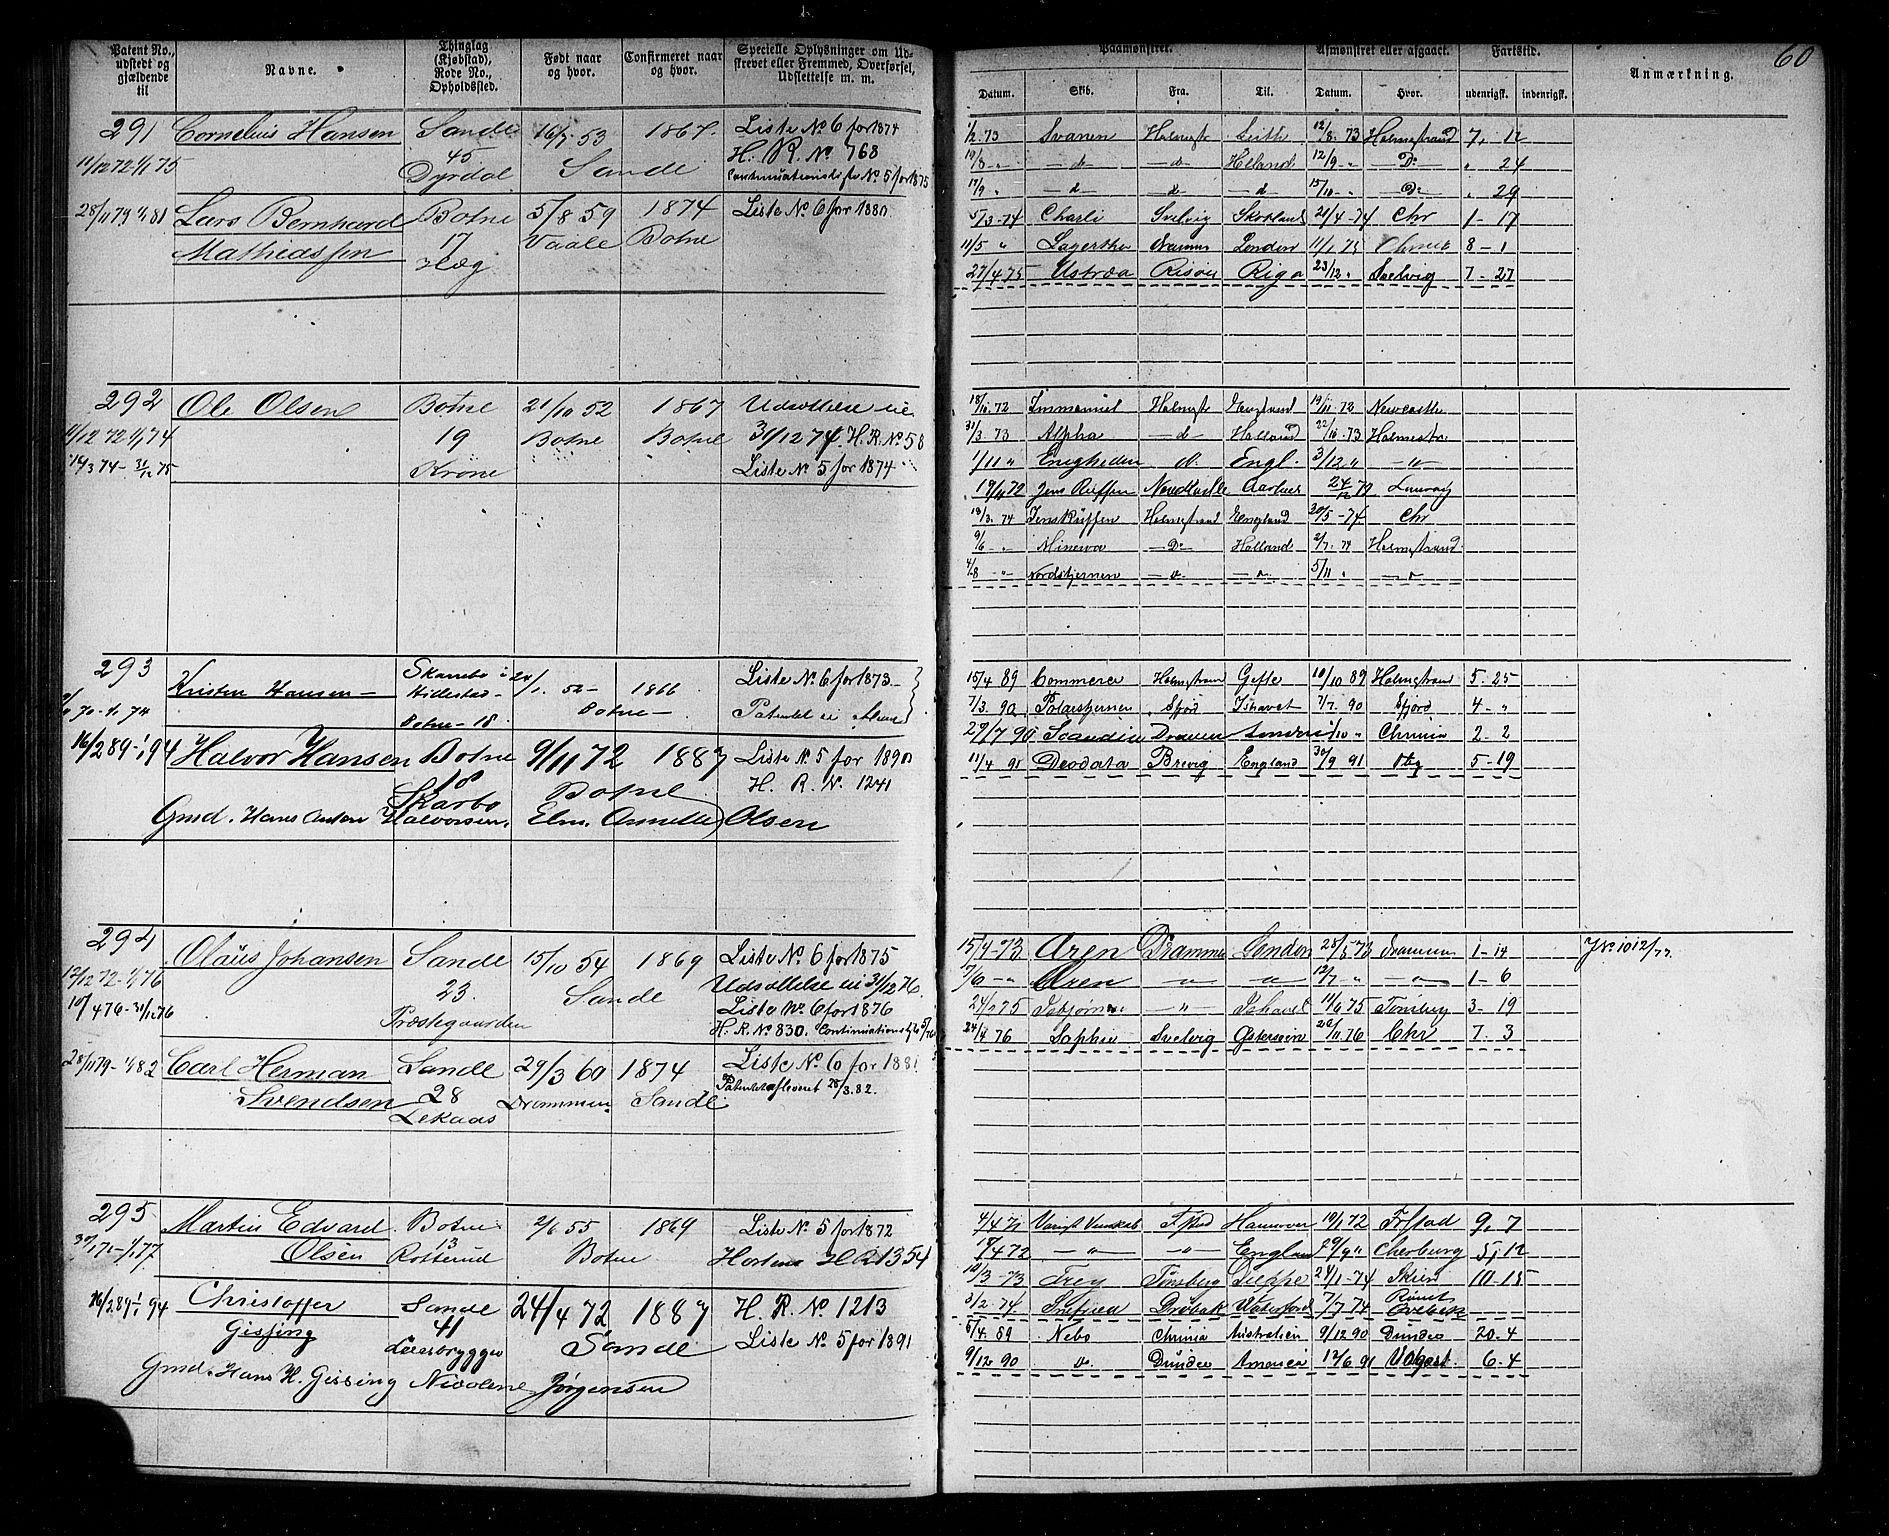 60
Patent No., udstedt og gjældende til
Navne.
Thinglag (Kjøbstad), Rode No., Opholdssted.
Født naar og hvor.
Confirmeret naar og hvor.
Specielle Oplysninger om Udskrevet eller Fremmed, Overførsel, Udslettelse m. m.
Paamønstret.
Afmønstret eller afgaaet.
Fartstid.
Anmærkning.
Datum. Skib. Fra. Til. Datum. Hvor. udenrigsk. indenrigsk.
291 Cornelius Hansen Sande 16/7 53 1867. Liste No 6 for 1874
11/12 72 1/1 75 45 Sande H. R. No 768
Dyrdal Continuationsliste No 5 for 1875
28/11 79 1/1 81 Lars Bernhard Botne 5/8 59 1874 Liste No 6 for 1880
Mathiassen 17 Vaale Botne
Høg
1/2 73 Svanen Holmest Leith 12/8 73 Holmestrand 7, 12
19/8 " — d — d Holland 12/9 " — Do " 24
17/9 " — d — d — d 15/10 " — Do " 29
5/3 - 74 Charli Svelvig Skotland 21/4 - 74 Chr 1 - 17
11/5 " Lagertha Drammn London 11/1 75 8 - 1
27/4 75 Ustræa Risøer Riga 23/12 " Svelvig 7 - 27
292 Ole Olsen Botne 21/10 52 1867 Udsættelse til
11/12 72 1/1 74 19 Botne Botne 31/12 74. H. R. No 58
14/3 74 - 31/12 75 Krone Liste No 5 for 1874
18/10 72 Immanuel Holmest England 19/11 72 Newcastle
31/3 73 Alpha — d Holland 22/10 - 73 Holmestr
1/11 " Enigheden d. Engl. 3/12 " — "
19/11 72 Jens Ruffen Aarhus 24/12 72
18/3. 74 Jens Ruffen Holmestrand England 20/5 - 74 Chr
9/6 - " Minerva — Do Holland 2/7. 74 Holmestrand
4/8 - " Nordstjernen — d — d 5/11 " — d
293 Kristen Hansen — Skarrebo i 52 — 1866 Liste No 6 for 1873 —
Hillestad — Botne — Patentet
Botne - 18.
16/2 89 - 1/1 94 Halvor Hansen Botne 9/11 72 1887 Liste No 5 for 1890
18 Botne H. R. No 1241
Skarbo
Gmd. Hans Anton Halvorsen. Elm. Annette Olsen
15/4 89 Commerce Holmstran Gefle 10/10 89 Holmstrand 5 - 25
1/3. 90 Polarstjernen Sfjord Ishavet 1/7. 90 Sfjord 4 - "
29/7 90 Scandia Drammen 1/10 " Chrnia 2 - 2
11/4 91 Deodata Brevig England 30/9 91 5 - 19
294 Olaus Johansen Sande 15/10 54 1869 Liste No 6 for 1875
12/12 72 - 1/1 76 23. Sande Udsættelse til 31/12 76.
10/4 76 - 31/12 76 Præstegaarden Liste No 6 for 1876
H. R. No 830. Continuationsliste
28/11 79 - 1/1 82 Carl Herman Sande 29/3 60 1874 Liste No 6 for 1881
Svendsen 28 Drammen Sande Patentet afleveret 28/3. 82.
Lekaas
15/4 - 73 Aren Dramme London 28/5 73 Drammen 1 - 14 J No 1012/77
7/6 - " Aren — " — " 12/7 " — " 1 - 6
24/2 75 Isbjørnen — " Ishavet 11/6 75 Tønsberg 3 - 19
24/4 76 Sophie Svelvig Østersøen 26/11 76 Chr 7. 3
295 Martin Edvard Botne 2/6 55 1869 Liste No 5 for 1872
Olsen 13 Botne Horten H R 1354
Rotterud
16/2 89 - 1/1 94 Christoffer Sande 24/4 72 1887 H. R. No 1213
Gissing 41 Sande Liste No 5 for 1891
Leersbryggen
Gmd. Hans H. Gissing Nicoline Jørgensen
4/4 71 Hannover 19/1 72 Frstad 9, 7
18/4 72 — " — " England 29/9 " Cherburg 5, 12
10/3 - 73 Frey Tønsberg Dieppe 24/1 - 74 Skien 10 - 15
3/2 - 74. Drøbak Waterford 7/7 74
5/4. 89 Nebo Chrinia Australien 9/12 90 Dundee 20 - 4
9/12 90 d Dundee America 12/6 91 6 - 4